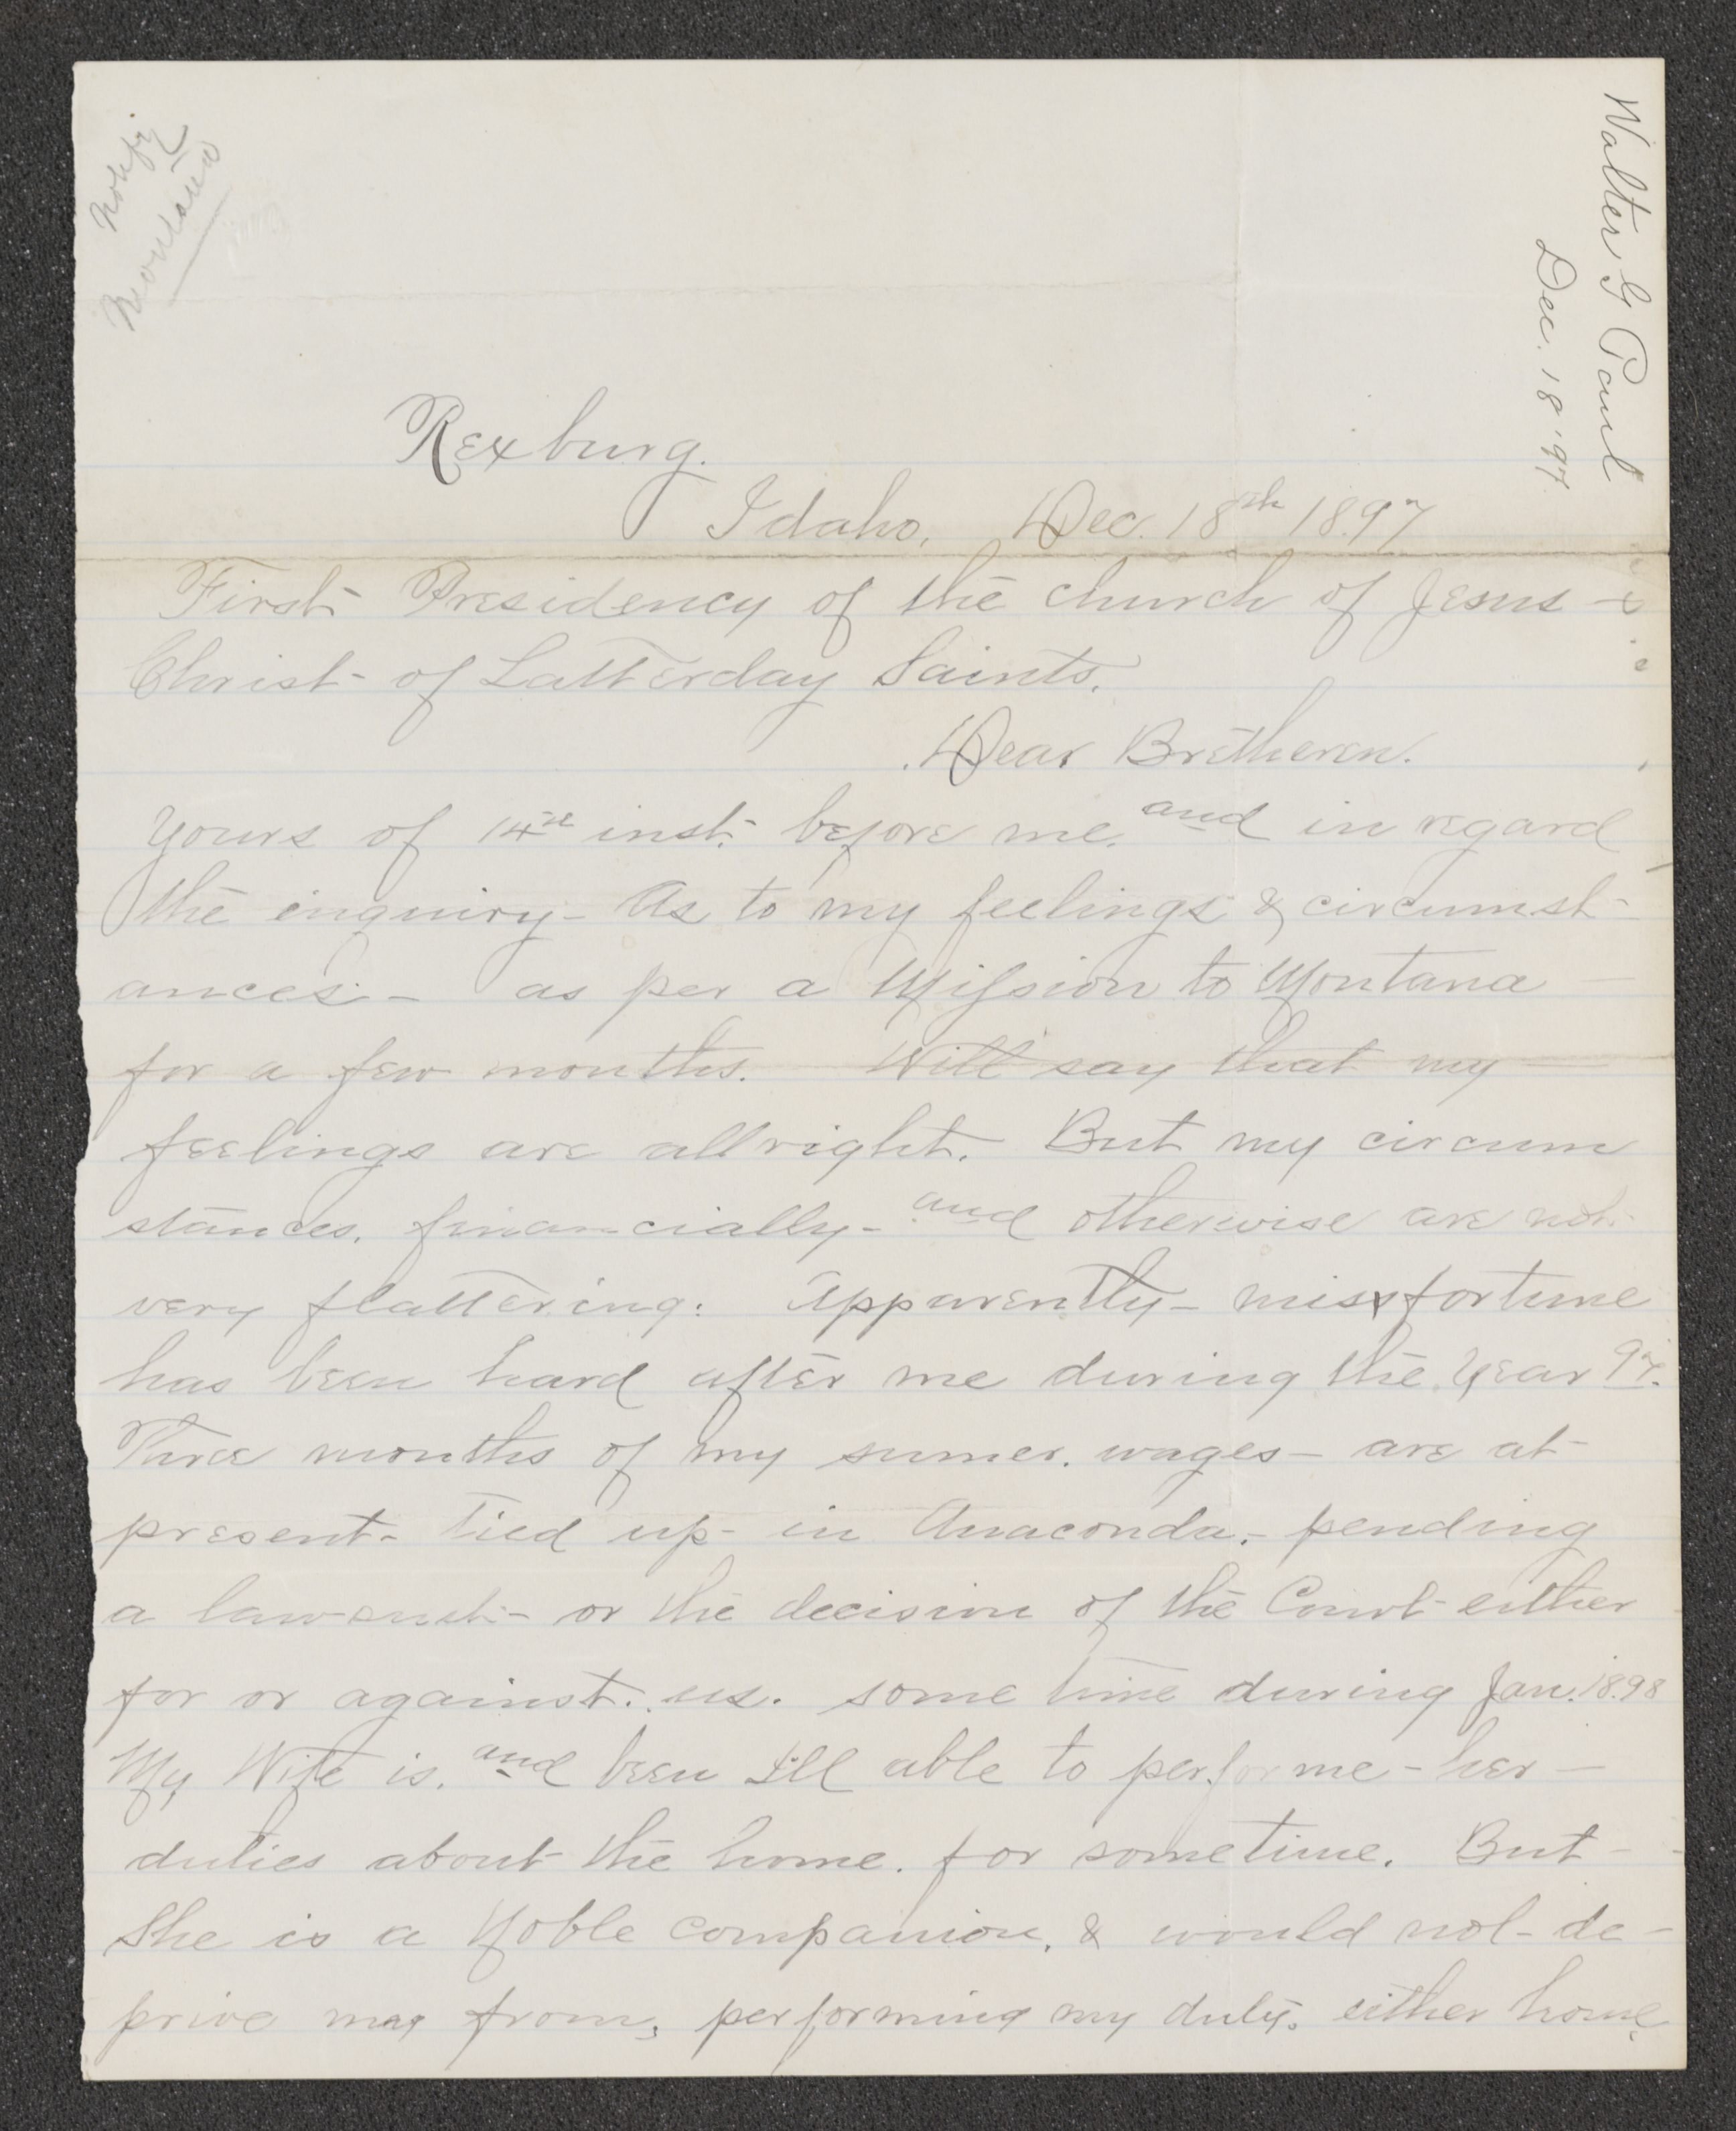 Notify
Montana
Walter G Paul
Dec. 18 '97.
Rexburg.
Idaho, Dec. 18th 1897
First Presidency of the church of Jesus
Christ of Latterday Saints.
Dear Bretheren.
Yours of 14th inst. before me. and in regard
the enquiry - As to my feelings & circumst-
ances - as per a Mission to Montana -
for a few months. Will say that my -
feelings are allright. But my circum
stances, financially - and otherwise are not
very flattering: Apparently - missfortune
has been hard after me during the Year 97.
Three months of my sumer. wages - are at
present - Tied up - in Anaconda, - pending
a law-suit - or the decision of the Court either
for or against. us. some time during Jan. 1898
My Wife is. and been Ill able to performe - her -
duties about the home. for sometime. But -
She is a Noble companion, & would not - de-
prive me from, performing my duty. either home,